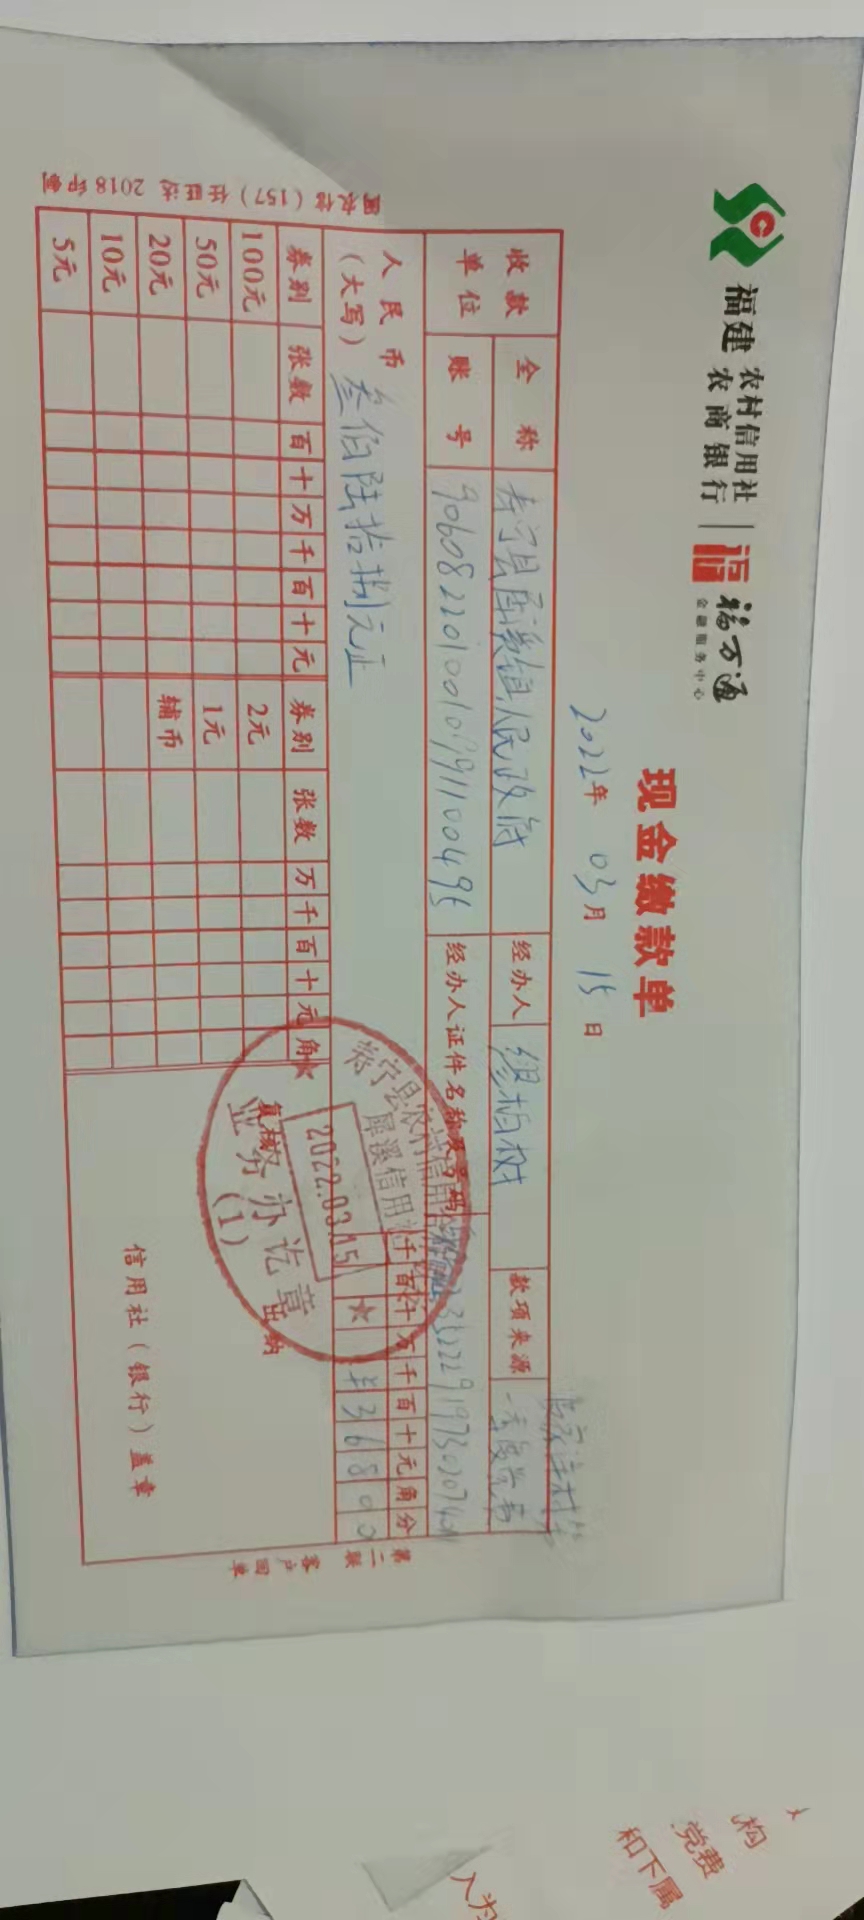 福建 农村信用社
农商银行
福 福万通
金融服务中心
现金缴款单
2022年 03月 15日
收款单位 全称 寿宁县犀溪镇人民政府 经办人 缪柏树 款项来源
一季度党费
账号 9060822010010991100495 经办人证件名称及号码
人民币
(大写) 叁佰陆拾捌元正
千百十万千百十元角分
¥36800
券别 张数 百十万千百十元 券别 张数 万千百十元角
100元 2元
50元 1元
20元 辅币
10元
5元
复核 出纳
信用社(银行)盖章
寿宁县农村信用
犀溪信用社
2022.03.15
业务办讫章
(1)
第二联 客户回单
2018印制
构
党费
和下属
人为